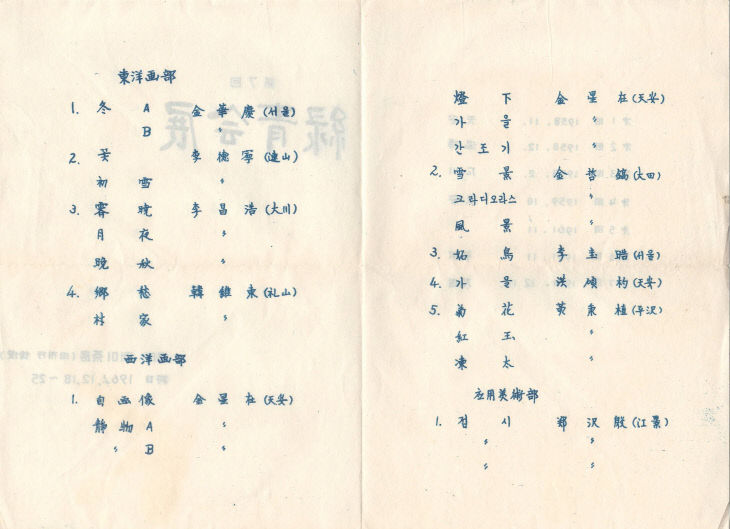 東洋画部
1. 冬 A 金華慶 (서울)
B 〃
2. 꽃 李德寧 (連山)
初雪 〃
3. 霧曉 李昌浩 (大川)
月夜 〃
晩秋 〃
4. 鄕愁 韓維東 (礼山)
村家 〃
西洋画部
1. 自画像 金星在 (天安)
静物 A 〃
〃 B 〃
燈下 金星在 (天安)
가을
간조기 〃
2. 雪景 金哲鎬 (大田)
그라디오라스 〃
風景 〃
3. 鳥 李圭晧 (서울)
4. 가을 洪碩杓 (天安)
5. 菊花 黄秉植 (平沢)
紅玉 〃
凍太 〃
応用美術部
1. 접시 鄭沢殷 (江景)
〃 〃
〃 〃